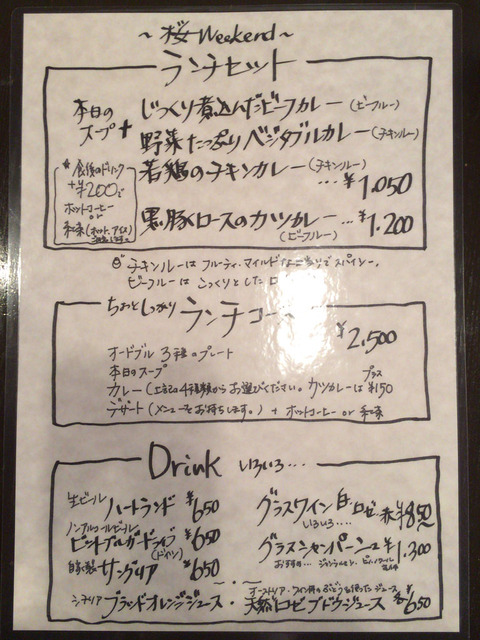 ～桜Weekend～
ランチセット
本日の
スープ +
じっくり煮込んだビーフカレー(ビーフルー)
野菜たっぷりベジタブルカレー(チキンルー)
若鶏のチキンカレー(チキンルー)
...¥1,050
黒豚ロースのカツカレー...¥1,200
(ビーフルー)
* 食後のドリンク
+¥200で
ホットコーヒー
or
紅茶(ホット、アイス)
チキンルーは フルーティ・マイルドな でスパイシー。
ビーフルーは こっくりとした
ちょっとしっかり ランチコー
¥2,500
オードブル 3種のプレート
本日のスープ
カレー(上記の4種類からお選びください。カツカレーは プラス ¥150
デザート(メニューをお持ちします。) + ホットコーヒー or 紅茶
Drink いろいろ...
生ビール ハートランド ¥650
ノンアルコールビール
ビットブルガードライブ ¥650
(ドイツ)
自家製 サングリア ¥650
グラスワイン 白 ロゼ 赤 ¥850
いろいろ....
グラスシャンパーニュ ¥1,300
おすすめ...
シチリア ブラッドオレンジジュース・
オーストリア・ワイン用のぶどうを使ったジュース
天然ロゼブドウジュース 各¥650